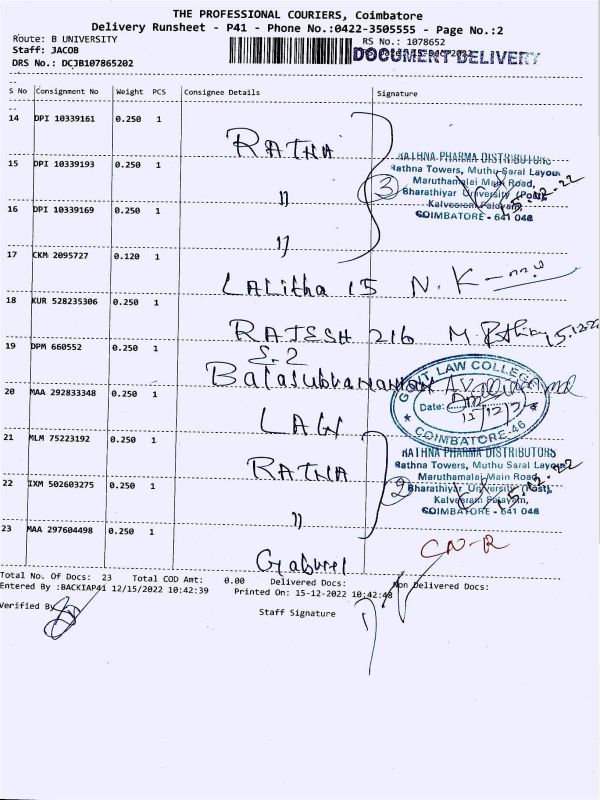 THE PROFESSIONAL COURIERS, Coimbatore
Delivery Runsheet - P41 - Phone No.:0422-3505555 - Page No.:2
Route: B UNIVERSITY
RS No.: 1078652
Staff: JACOB
DOCUMENT DELIVERY
DRS No.: DCJB107865202
S No Consignment No Weight PCS Consignee Details Signature
14 DPI 10339161 0.250 1 RATNA
15 DPI 10339193 0.250 1 〃
16 DPI 10339169 0.250 1 〃
3
RATHNA PHARMA DISTRIBUTORS
Rathna Towers, Muthu Saral Layout
Maruthamalai Main Road,
Bharathiyar University (Post),
Kalveeram Palayam,
COIMBATORE - 641 046
15.12.22
17 CKM 2095727 0.120 1 Lalitha 15 N. K
18 KUR 528235306 0.250 1 RAJESH 216 M. 15.12.22
19 DPM 660552 0.250 1 S.2
Balasubramaniam
20 MAA 292833348 0.250 1 LAW
GOVT LAW COLLEGE
Date: 15/12/22
COIMBATORE-46
21 MLM 75223192 0.250 1 RATHA
22 IXM 502603275 0.250 1 〃
2
RATHNA PHARMA DISTRIBUTORS
Rathna Towers, Muthu Saral Layout
Maruthamalai Main Road,
Bharathiyar University (Post),
Kalveeram Palayam,
COIMBATORE - 641 046
15.12.22
23 MAA 297604498 0.250 1 Gabriel CN-R
Total No. Of Docs: 23 Total COD Amt: 0.00 Delivered Docs: Non Delivered Docs:
Entered By :BACKIAP41 12/15/2022 10:42:39 Printed On: 15-12-2022 10:42:48
Verified By
Staff Signature